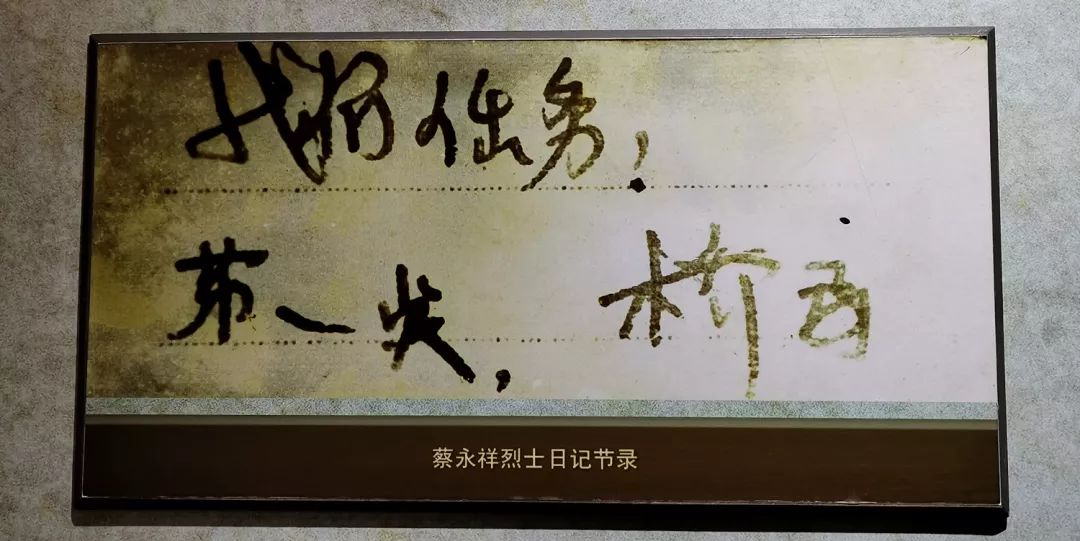 我的任务！
第一，桥西
蔡永祥烈士日记节录